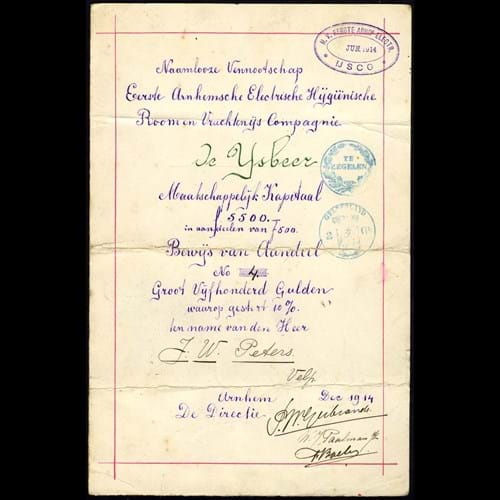 N.V. EERSTE ARNH. ELECTR.
JUN. 1914
IJSCO
Naamlooze Vennootschap
Eerste Arnhemsche Electrische Hÿgiënische
Room en Vruchtenijs Compagnie
De Ysbeer
TE ZEGELEN
Maatschappelijk Kapitaal
ƒ 5500.-
in aandeelen van ƒ500.
GELDERLAND
Bewijs van Aandeel
No 4
Groot Vijfhonderd Gulden
waarop gestort 10%.
ten name van den Heer
J. W. Peters.
Velp
Arnhem Dec 1914
De Directie